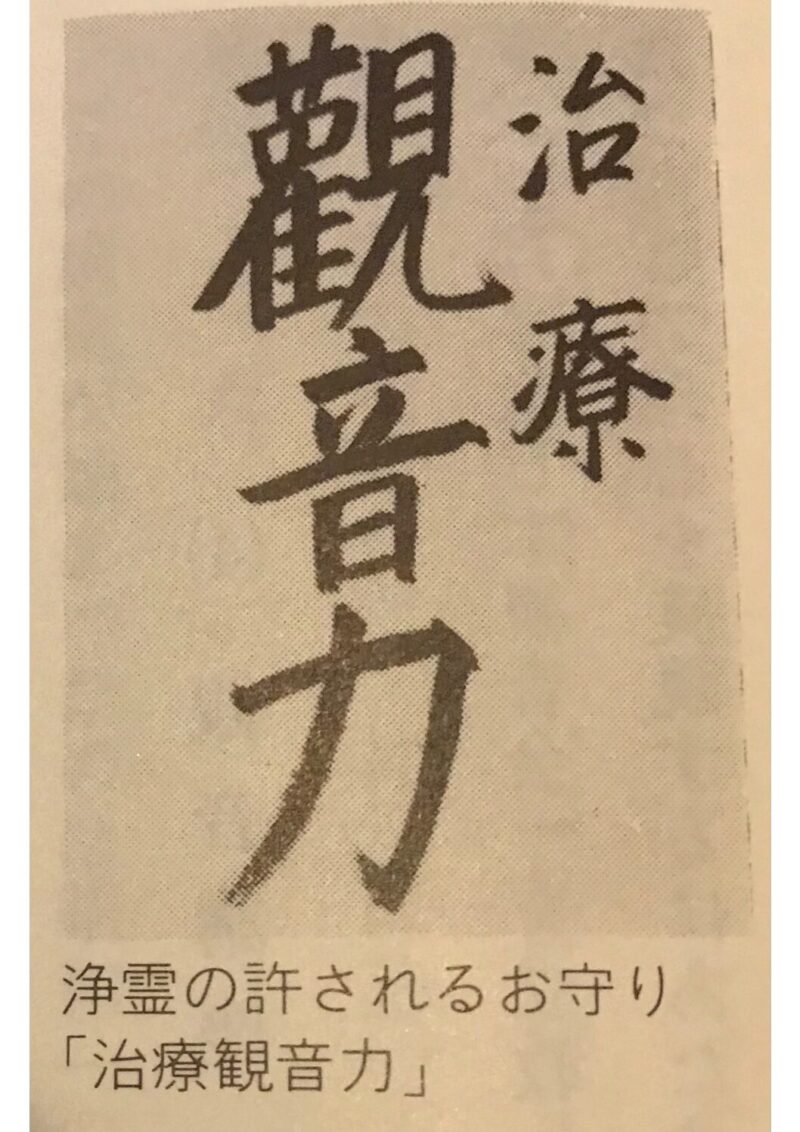 治療
觀音力
浄霊の許されるお守り
「治療観音力」